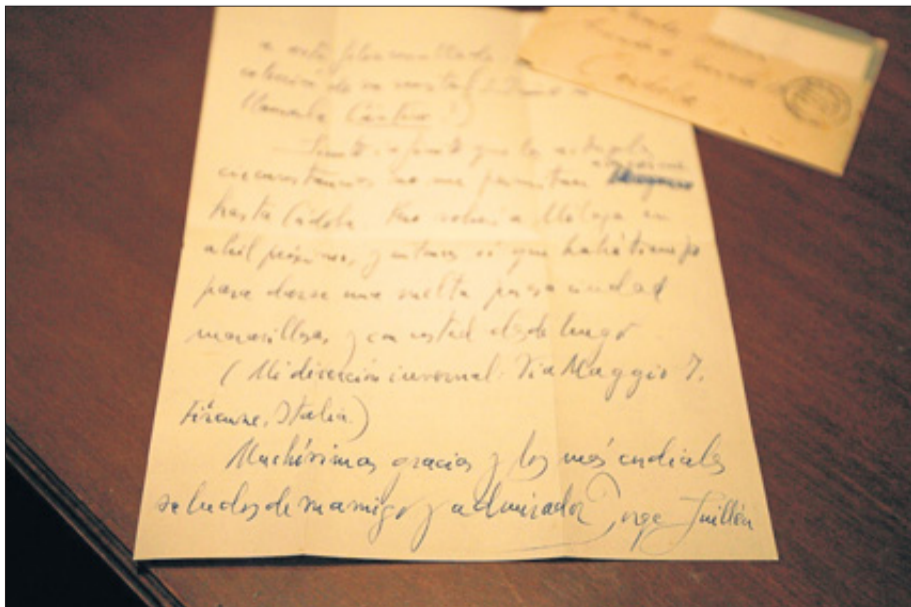 llamarla Cántico!)
Siento infinito que las actuales
circunstancias no me permitan alejarme
hasta Córdoba. Pero volveré a Málaga en
abril próximo, y entonces sí que habrá tiempo
para darse una vuelta por esa ciudad
maravillosa, y con usted desde luego.
(Mi dirección invernal: Via Maggio 7.
Firenze, Italia.)
Muchísimas gracias y los más cordiales
saludos de su amigo y admirador Jorge Guillén
Córdoba